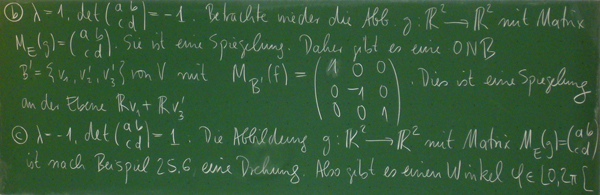 (b) λ = 1, det (a b c d) = -1. Betrachte wieder die Abb. g: ℝ² → ℝ² mit Matrix
M_E(g) = (a b c d). Sie ist eine Spiegelung. Daher gibt es eine ONB
B' = {v₁, v₂', v₃'} von V mit M_B'(f) = (1 0 0 0 -1 0 0 0 1). Dies ist eine Spiegelung
an der Ebene ℝv₁ + ℝv₃'
(c) λ = -1, det (a b c d) = 1. Die Abbildung g: ℝ² → ℝ² mit Matrix M_E(g) = (a b c d)
ist nach Beispiel 25.6 eine Drehung. Also gibt es einen Winkel φ ∈ [0, 2π[